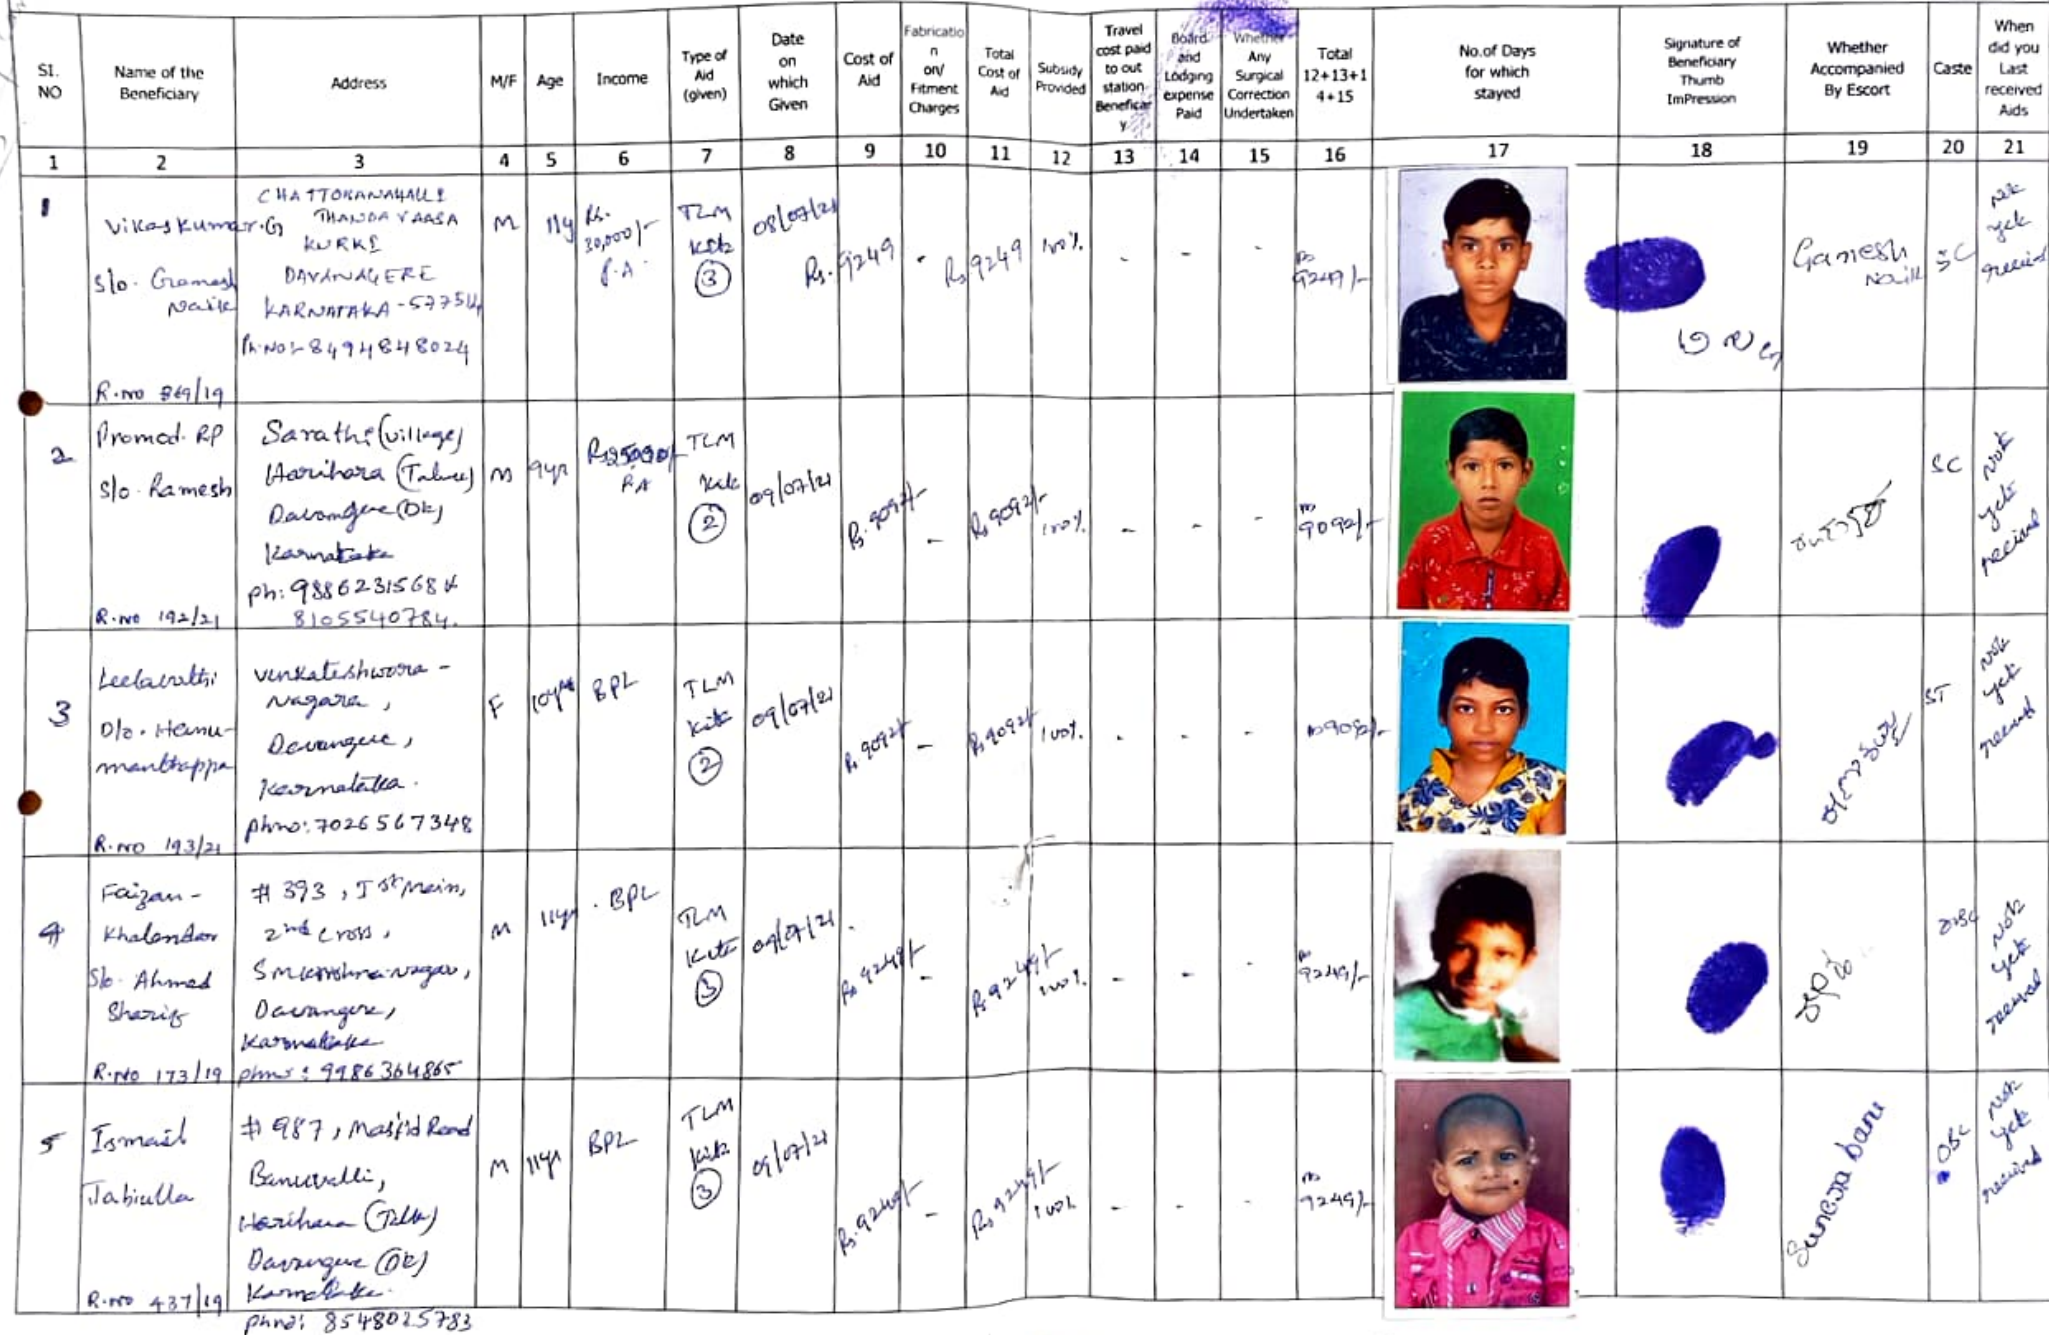 SI. NO
Name of the Beneficiary
Address
M/F
Age
Income
Type of Aid (given)
Date on which Given
Cost of Aid
Fabricatio n on/ Fitment Charges
Total Cost of Aid
Subsidy Provided
Travel cost paid to out station Beneficar y
Board and Lodging expense Paid
Whether Any Surgical Correction Undertaken
Total 12+13+1 4+15
No.of Days for which stayed
Signature of Beneficiary Thumb ImPression
Whether Accompanied By Escort
Caste
When did you Last received Aids
1 2 3 4 5 6 7 8 9 10 11 12 13 14 15 16 17 18 19 20 21
1
Vikas Kumar.G
S/o. Ganesh
Naik
R.no 869/19
CHATTOKANAHALLI
THANDA YAASA
KURKI
DAVANAGERE
KARNATAKA - 577514
Ph.No:- 8494848024
M
11y
Rs.
30,000/-
P.A.
TLM
Kit
3
08/07/21
Rs. 9249
-
Rs 9249
100%
-
-
-
Rs
9249/-
Ganesh
Naik
SC
Not
yet
received
2
Promod. RP
S/o. Ramesh
R.no 192/21
Sarathi (village)
Harihara (Taluk)
Davangere (Dt)
Karnataka
Ph: 9886231568 &
8105540784.
M
9yr
Rs 25000/-
P.A
TLM
Kit
2
09/07/21
Rs. 9092/-
-
Rs 9092/-
100%
-
-
-
Rs
9092/-
SC
Not
yet
recived
3
Leelavathi
D/o. Hanu-
manthappa
R.no 193/21
Venkateshwara -
Nagara,
Davangere,
Karnataka.
Phno: 7026567348
F
10yr
BPL
TLM
Kit
2
09/07/21
Rs 9092/-
-
Rs 9092/-
100%
-
-
-
Rs 9092/-
ST
Not
yet
received
4
Faizan -
Khalandar
S/o. Ahmed
Sharif
R.No 173/19
# 393, Ist Main,
2nd Cross,
SM Krishna Nagar,
Davangere,
Karnataka
Phno: 9986364865
M
11yr
BPL
TLM
Kit
3
09/07/21
Rs 9249/-
-
Rs 9249/-
100%
-
-
-
Rs
9249/-
OBC
Not
yet
received
5
Ismail
Jabiulla
R.no 437/19
# 987, Masjid Road
Banuvalli,
Harihara (Tlk)
Davangere (Dt)
Karnataka.
Phno: 8548025783
M
11yr
BPL
TLM
Kit
3
09/07/21
Rs. 9249/-
-
Rs 9249/-
100%
-
-
-
Rs
9249/-
banu
OBC
Not
yet
received